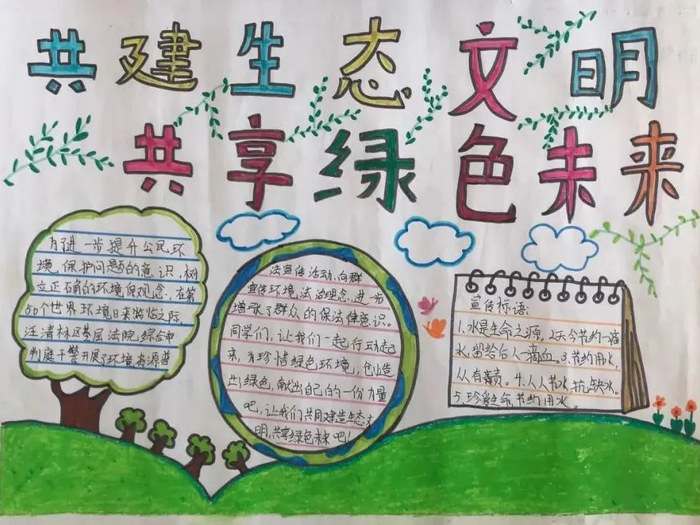 共建生态文明
共享绿色未来
为进一步提升公民环
境,保护问题的意识,树
立正确的环境保观念,在第
50个世界环境日来临之际
法院,综合审
判庭干警开展了环境资源普
法宣传活动,向群
宣传环境法治理念,进一步
增强了群众的保法律意识。
同学们,让我们一起行动起
来,为珍惜绿色环境,创造
出绿色,献出自己的一份力量
吧,让我们共同建造生态文
明,共享绿色未来吧!
宣传标语:
1.水是生命之源,2.今节约一滴
水,留给后人一滴血,3.节约用水,
人人有责。4.人人节水,缺水。
5.珍爱生命,节约用水。